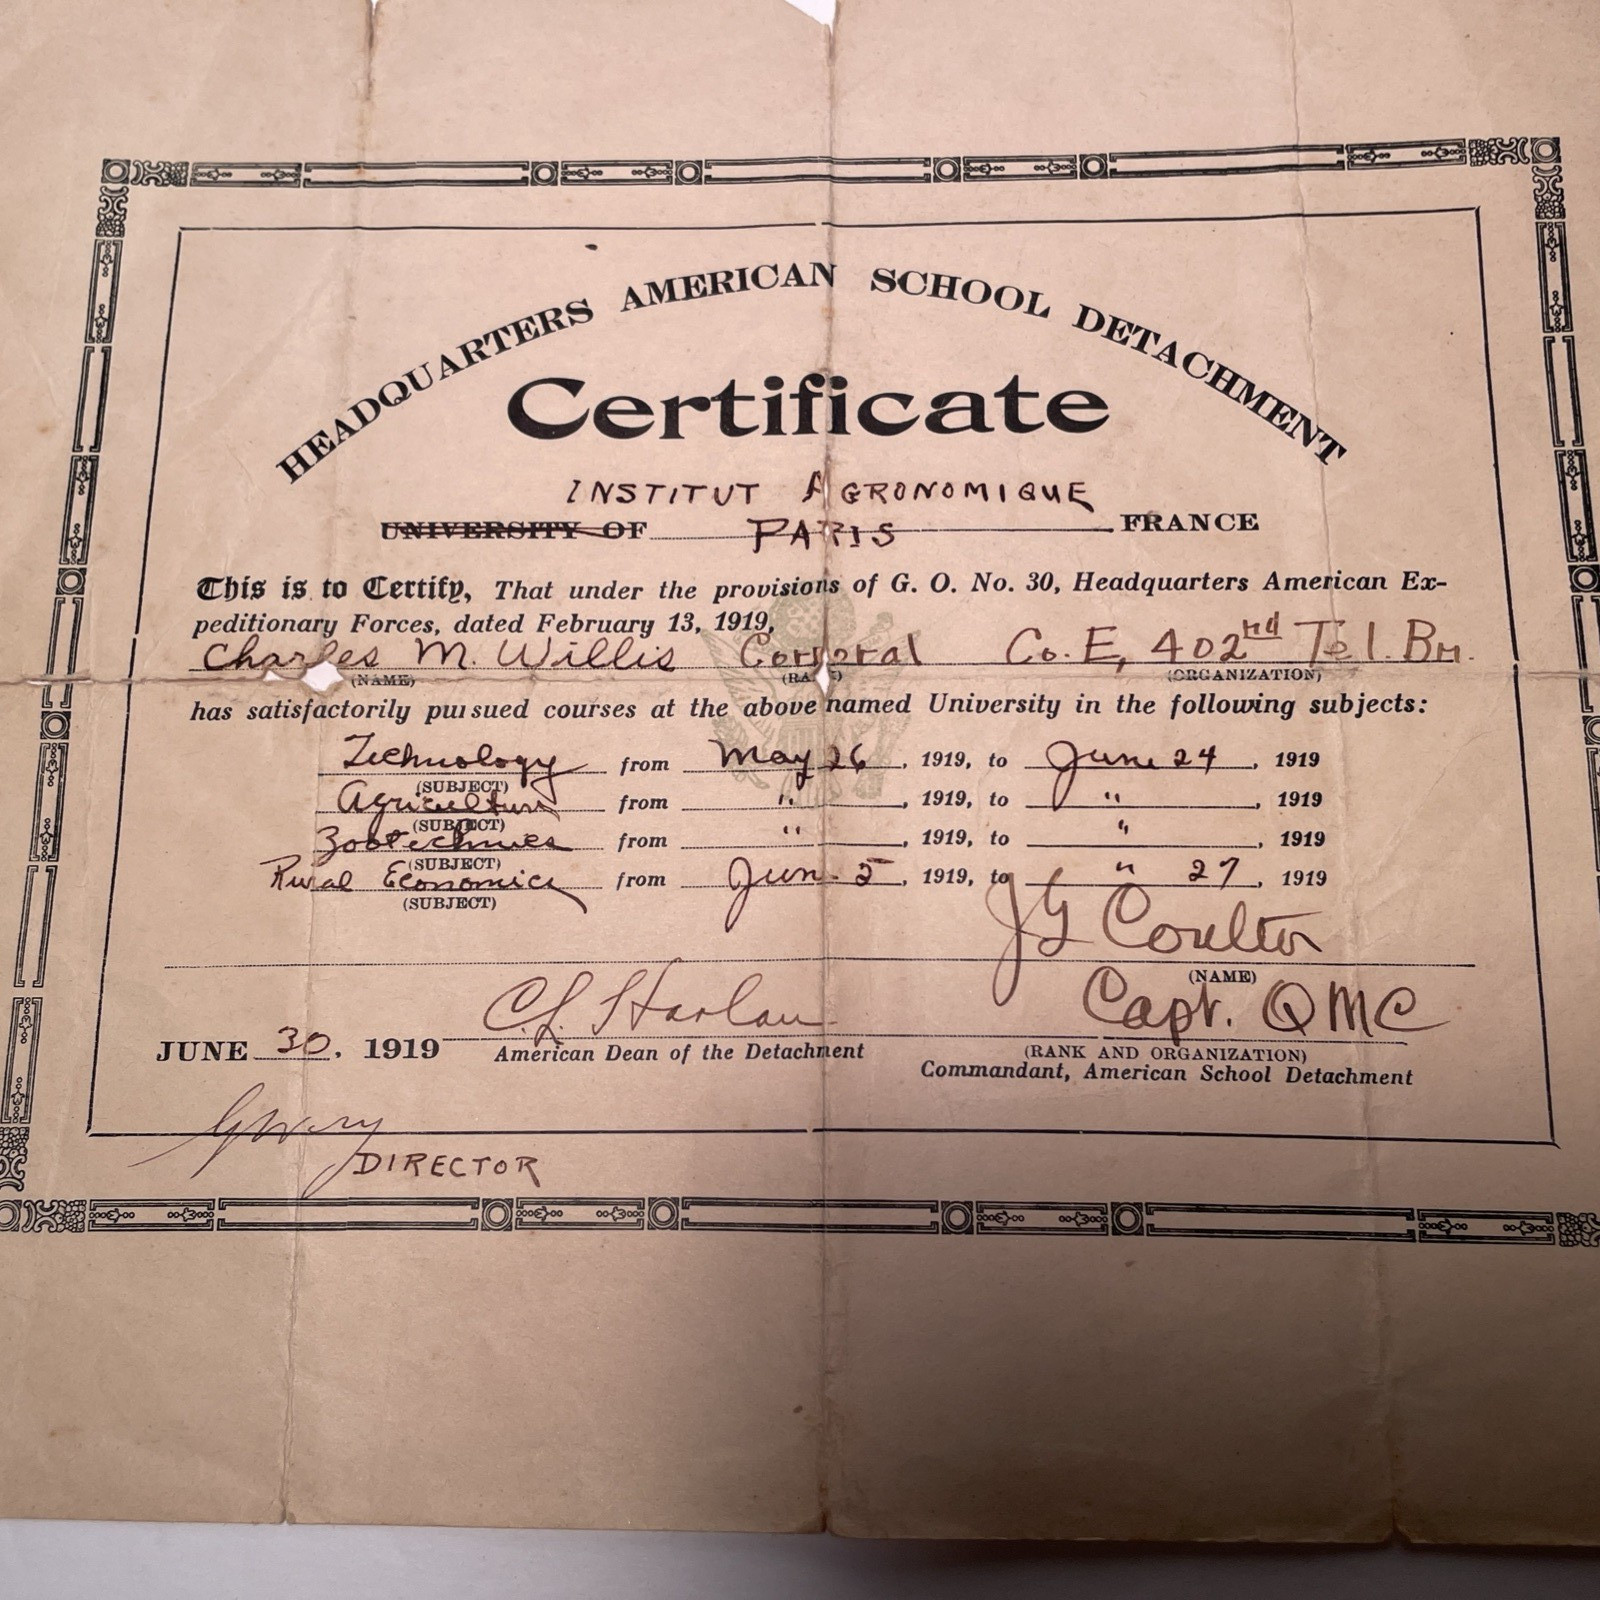 HEADQUARTERS AMERICAN SCHOOL DETACHMENT
Certificate
INSTITUT AGRONOMIQUE
UNIVERSITY OF PARIS FRANCE
This is to Certify, That under the provisions of G. O. No. 30, Headquarters American Ex-
peditionary Forces, dated February 13, 1919,
Charles M. Willis Corporal Co. E, 402nd Tel. Bn.
(NAME) (RANK) (ORGANIZATION)
has satisfactorily pursued courses at the above named University in the following subjects:
Technology from May 26, 1919, to June 24, 1919
(SUBJECT)
Agriculture from ", 1919, to ", 1919
(SUBJECT)
Zootechnies from ", 1919, to ", 1919
(SUBJECT)
Rural Economics from June 5, 1919, to " 27, 1919
(SUBJECT)
J G Coulter
(NAME)
C. L. Harlan Capt. QMC
JUNE 30, 1919 American Dean of the Detachment (RANK AND ORGANIZATION)
Commandant, American School Detachment
DIRECTOR